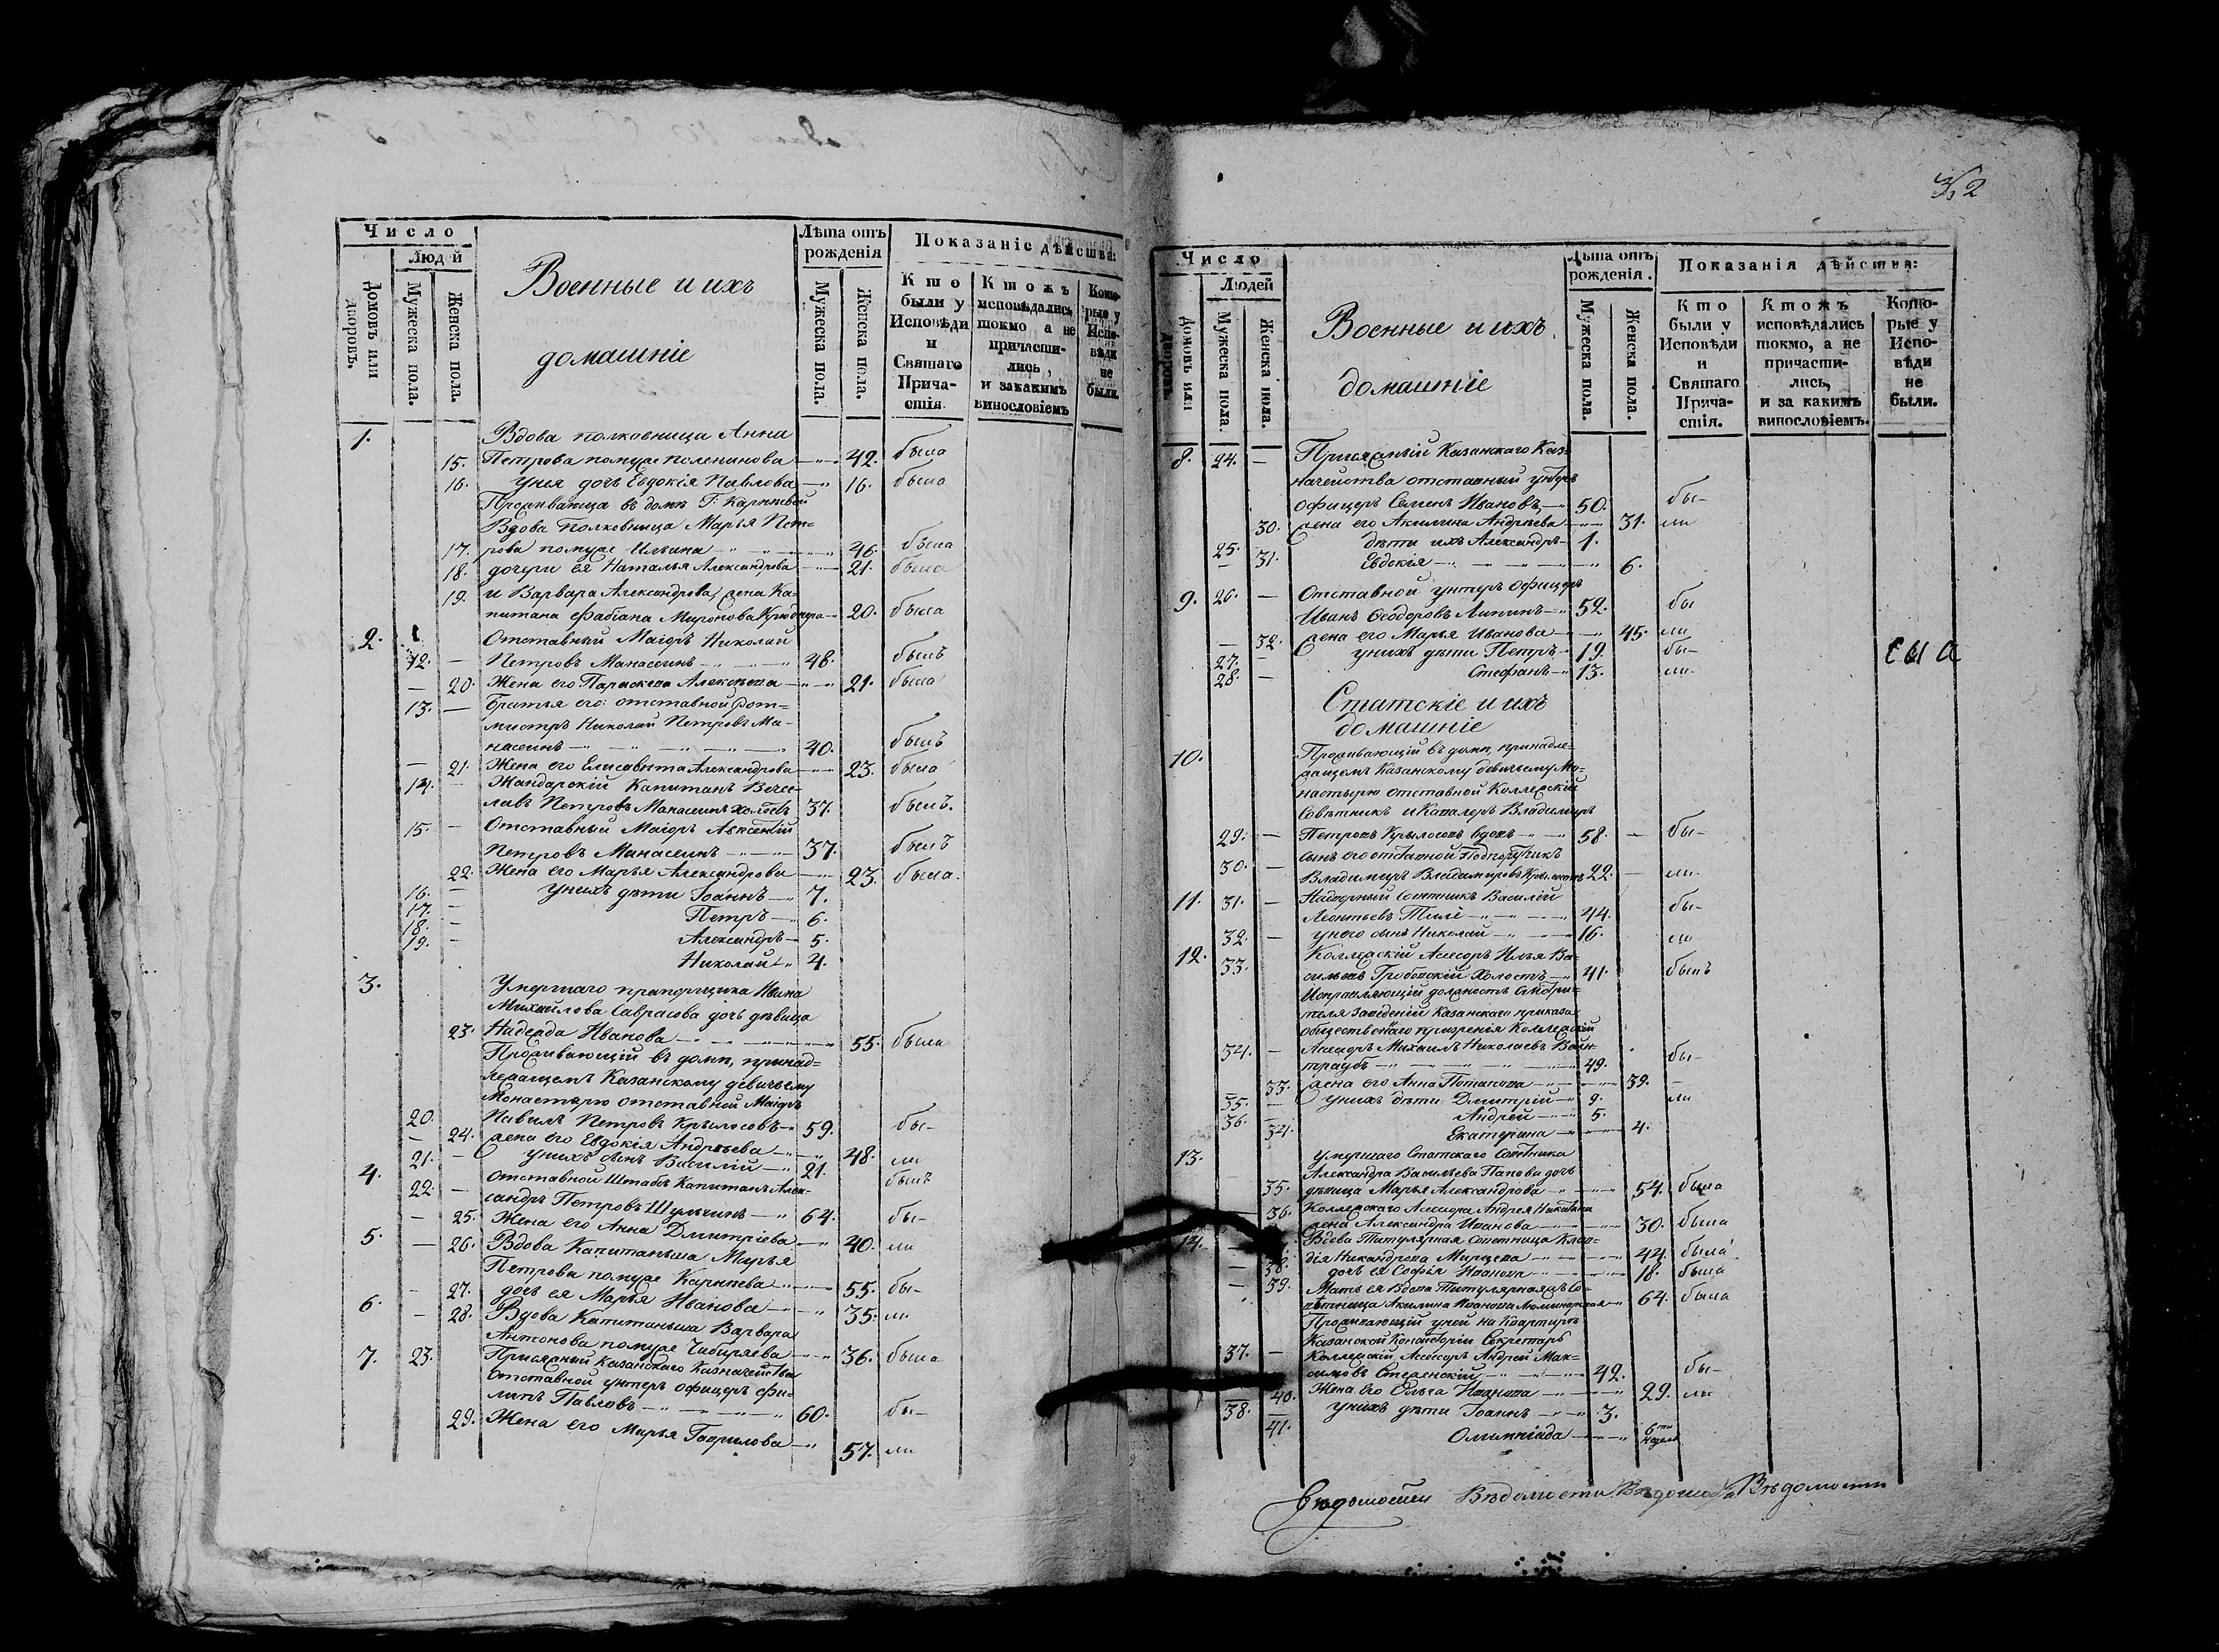 Число
Людей
Домовъ или дворовъ.
Мужеска пола.
Женска пола.
Военные и ихъ
домашніе
Лѣта отъ рожденія
Мужеска пола.
Женска пола.
Показаніе дѣйства:
Кто были у Исповѣди и Святаго Причастія.
Ктожъ исповѣдались токмо, а не причастились, и за какимъ винословіемъ
Которые у Исповѣди не были.
1. Вдова полковница Анна
15. Петрова 42. была
16. у нея дочь Евдокія Павлова 16. была
Проживающа въ домѣ Г: Каринской
Вдова Полковница Марья Пет=
17. рова по мужѣ Ильина 46. была
18. дочери ея Наталья Александрова 21. была
19. и Варвара Александрова, жена Ка=
питана Фабіана Миронова 20. была
2. Отставный Маіоръ Николай
12. Петровъ Манасеинъ 48. былъ
20. Жена его Параскева Алексѣева 21. была
13. Братья его: отставной Рот=
мистръ Николай Петровъ Ма-
насеинъ 40. былъ
21. Жена его Елисавета Александрова 23. была
14. Жандарскій Капитанъ Вяче=
лавъ Петровъ Манасеинъ холостъ 37. былъ.
15. Отставный Маіоръ Авксентій
Петровъ Манасеинъ 37. былъ
22. Жена его Марья Александрова 23. была.
16. у нихъ дѣти Іоаннъ 7.
17. Петръ 6.
18. Александръ 5.
19. Николай 4.
3. Умершаго прапорщика Ивана
Михайлова Саврасова дочь дѣвица
23. Надежда Иванова 55. была
Проживающій въ домѣ, принад=
лежащемъ Казанскому девичьему
Монастырю отставной Маіоръ
20. Павелъ Петровъ Крылосовъ 59. бы-
24. жена его Евдокія Андреева 48. ли
21. у нихъ сынъ Василій 21. былъ
4. 22. Отставной Штабъ Капитанъ Алек-
сандръ Петровъ Шульгинъ 64. бы-
25. Жена его Анна Дмитріева 40. ли
5. 26. Вдова Капитанша Марья
Петрова по мужѣ Каринева 55. бы-
27. дочь ея Марья Иванова 35. ли
6. 28. Вдова Капитанша Варвара
Антонова по мужѣ Чибиряева 36. была
7. 23. Присяжный Казанскаго Казначейства
Отставной унтеръ офицеръ Фи=
липъ Павловъ 60. бы-
29. Жена его Марья Гаврилова 57. ли
Число
Людей
Домовъ или дворовъ.
Мужеска пола.
Женска пола.
Военные и ихъ
домашніе
Лѣта отъ рожденія.
Мужеска пола.
Женска пола.
Показанія дѣйства:
Кто были у Исповѣди и Святаго Причастія.
Ктожъ исповѣдались токмо, а не причастились, и за какимъ винословіемъ.
Которые у Исповѣди не были.
8. 24. Присяжный Казанскаго Каз=
начейства отставный унтеръ
офицеръ Семенъ Ивановъ 50. бы-
30. жена его Акилина Андреева 31. ли
25. дѣти ихъ Александръ 1.
31. Евдокія 6.
9. 26. Отставной унтеръ офицеръ
Иванъ Ѳеодоровъ Липинъ 52. бы
32. жена его Марья Иванова 45. ли
27. у нихъ дѣти Петръ 19. бы-
28. Стефанъ 13. ли
Статскіе и ихъ
домашніе
10. Проживающій въ домѣ, принадле=
жащемъ Казанскому девичьему Мо=
настырю отставной Коллежскій
Совѣтникъ и Кавалеръ Владимиръ
29. Петровъ Крылосовъ вдовъ 58. бы-
сынъ его отставной Подпоручикъ
30. Владимиръ Владимировъ Крылосовъ 22. ли.
11. 31. Надворный Совѣтникъ Василій
Леонтьевъ Тиле 44. бы-
32. у него сынъ Николай 16. ли
12. 33. Коллежскій Асесоръ Илья Ва=
сильевъ холостъ 41. былъ
Исправляющій должность смотри=
теля заведеній Казанскаго приказа
общественнаго призренія Коллежскій
34. Асесоръ Михаилъ Николаевъ Вейн=
траубъ 49. бы-
33. жена его Анна Потапова 39.
35. у нихъ дѣти Дмитрій 9. ли
36. Андрей 5.
34. Екатерина 4.
13. Умершаго Статскаго Совѣтника
Александра Васильева Панова дочь
35. дѣвица Марья Александрова 54. была
36. Коллежскаго Асесора Андрея Никитина
жена Александра Иванова 30. была
14. Вдова Титулярная совѣтница Клав=
дія Никандрова 44. была
38. дочь ея Софья Иванова 18. была
39. Мать ея Вдова Титулярная Со=
вѣтница Акилина Иванова 64. была
Проживающій у ней на квартирѣ
Казанской Консисторіи Секретарь
37. Коллежскій Асессоръ Андрей Мак=
симовъ 42. бы-
40. Жена его Ольга Иванова 29. ли
38. у нихъ дѣти Іоаннъ 3.
41. Олимпіада 6ти недѣль
Ведомости Вѣдомости Вѣдомо Вѣдомости